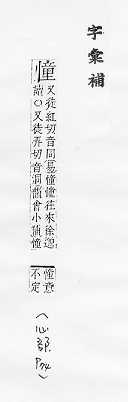 字彙補
憧
又徒紅切音同易憧憧往來徐邈
讀○又徒弄切音洞前會小補憧
憧意
不定
(心部
P74)